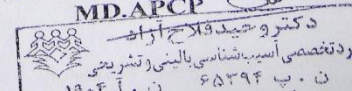 MD.APCP
دکتر وحید فلاح آزاد
رد تخصصی آسیب شناسی بالینی و تشریحی
ن . پ ۶۵۳۹۴